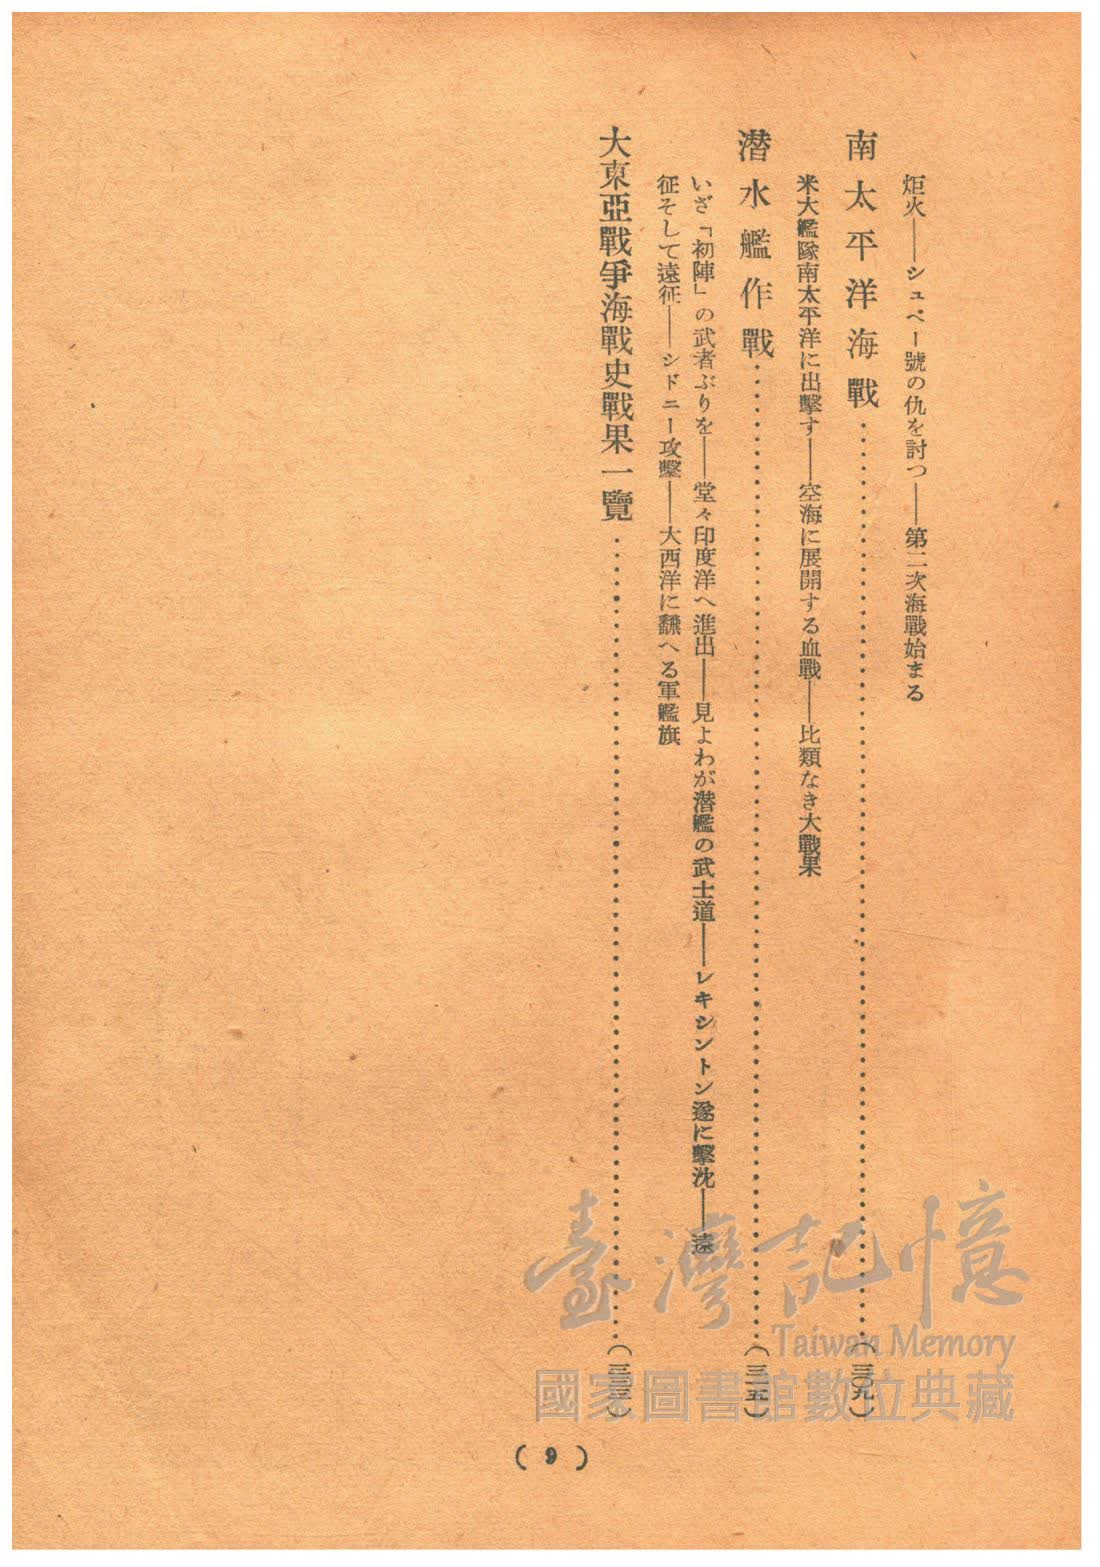 炬火——シュペー號の仇を討つ——第二次海戰始まる
南太平洋海戰……(三〇九)
米大艦隊南太平洋に出擊す——空海に展開する血戰——比類なき大戰果
潜水艦作戰……(三一五)
いざ「初陣」の武者ぶりを——堂々印度洋へ進出——見よわが潜艦の武士道——レキシントン遂に擊沈——遠
征そして遠征——シドニー攻擊——大西洋に飜へる軍艦旗
大東亞戰爭海戰史戰果一覽……
(9)
臺灣記憶
Taiwan Memory
國家圖書館數位典藏